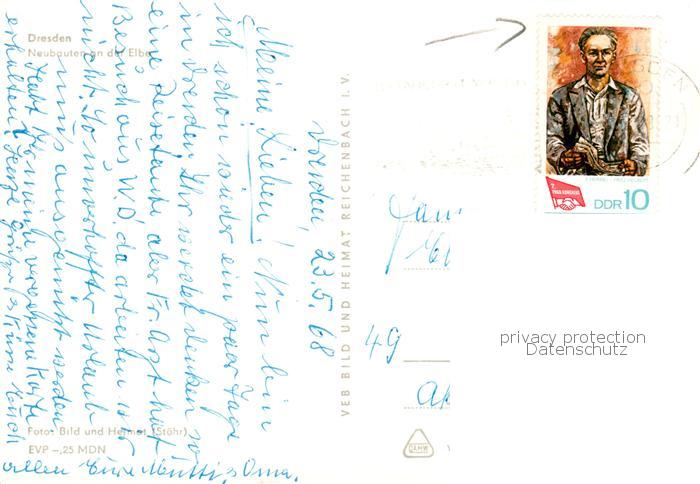 Dresden
Neubauten an der Elbe
Dresden 23.5.68
Meine Lieben! Nun bin
ich schon wieder ein paar Tage
in Dresden Ihr werdet denken so
eine Reisetante aber Fr. Ast hat
Besuch aus W.D. da arbeiten wir
nicht. So unverhoffter Urlaub
muss ausgenützt werden
Habt Ihr meine
erhalten? Herzl. Grüße &
allen Eure Mutti & Oma.
Foto: Bild und Heimat (Stöhr)
EVP –,25 MDN
VEB BILD UND HEIMAT REICHENBACH I. V.
DDR 10
49
privacy protection
Datenschutz